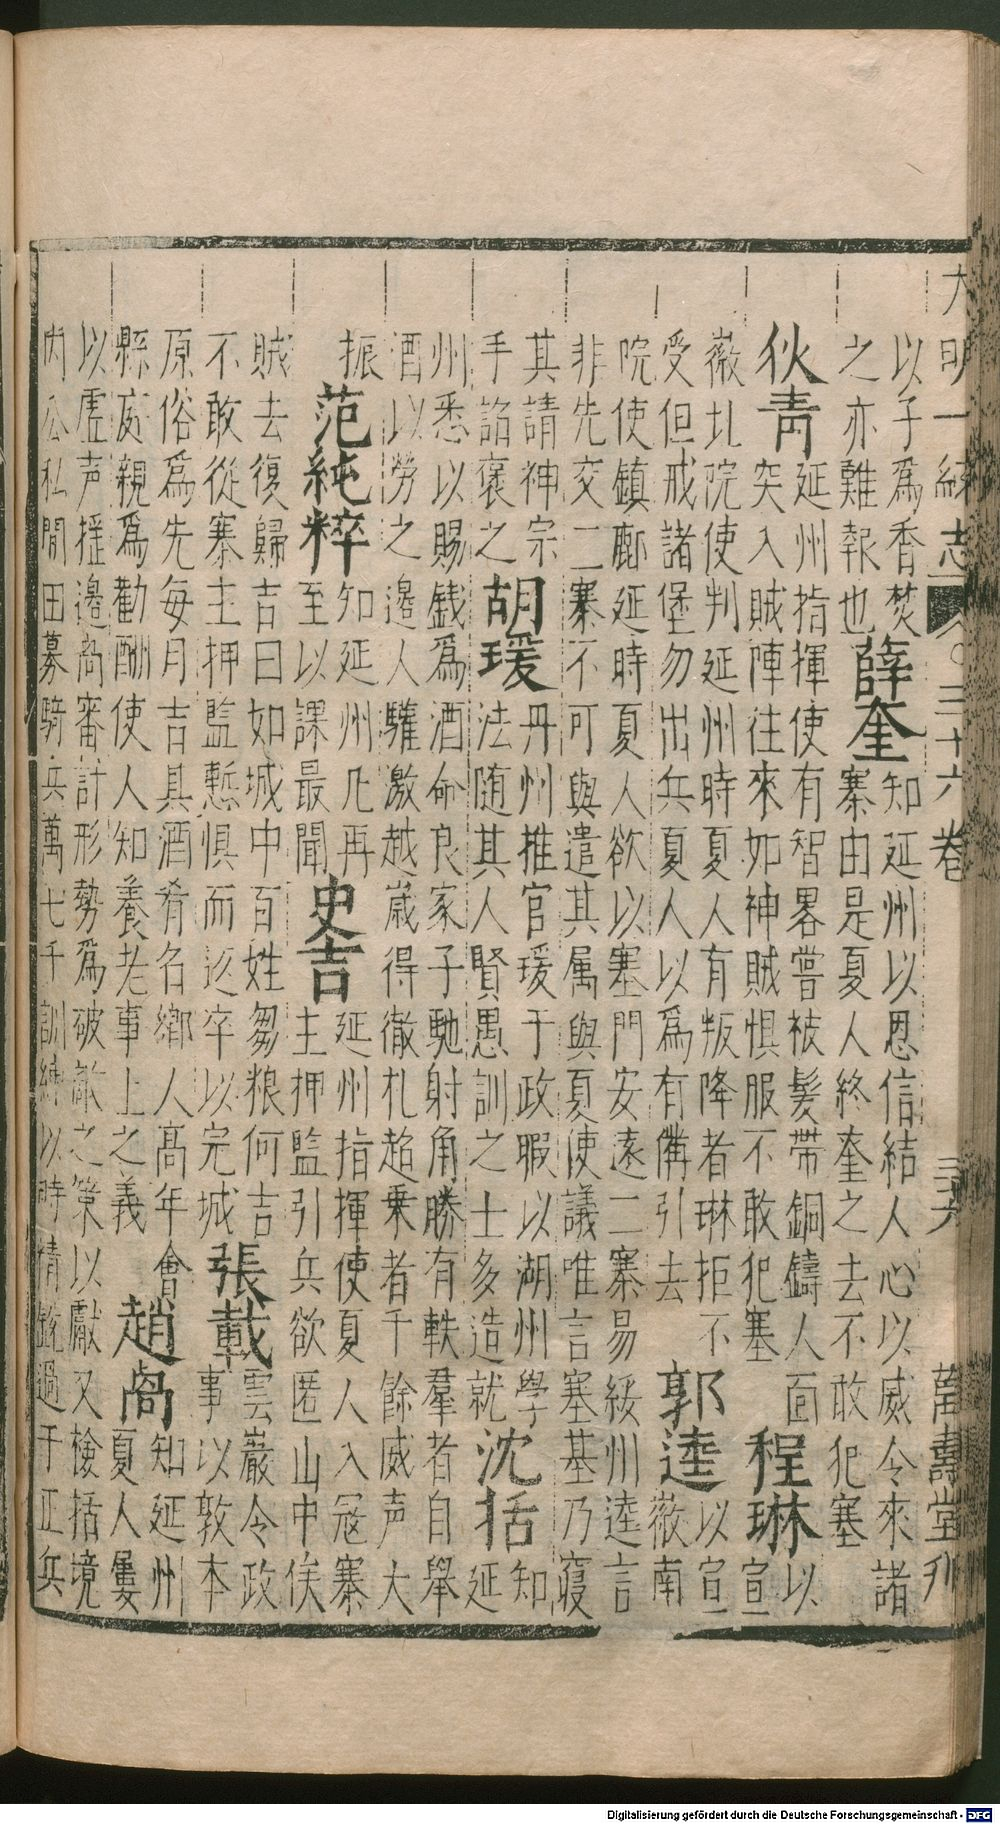 大明一統志 ○三十六卷 三十六 萬壽堂刊
以子爲香焚
之亦難報也
薛奎
知延州以恩信結人心以威令來諸
寨由是夏人終奎之去不敢犯塞
狄青
延州指揮使有智畧嘗被髮帶銅鑄人面
突入賊陣往來如神賊惧服不敢犯塞
程琳
以
宣
薇圠院使判延州時夏人有叛降者琳拒不
受但戒諸堡勿出兵夏人以爲有備引去
郭逵
以宣
薇南
院使鎮鄜延時夏人欲以塞門安遠二寨易綏州逵言
非先交二寨不可與遣其属與夏使議唯言塞基乃寢
其請神宗
手詔褒之
胡瑗
丹州推官瑗于政暇以湖州學
法随其人賢愚訓之士多造就
沈括
知
延
州悉以賜銭爲酒命良家子馳射角勝有軼羣者自舉
酒以勞之邊人驩激越歲得徹札超乗者千餘威声大
振
范純粹
知延州凡再
至以課最聞
史吉
延州指揮使夏人入冦寨
主押監引兵欲匿山中俟
賊去復歸吉曰如城中百姓芻粮何吉
不敢從寨主押監慙惧而还卒以完城
張載
雲巖令政
事以敦本
原俗爲先每月吉具酒肴名鄉人高年會
縣庭親爲勸酬使人知養老事上之義
趙卨
知延州
夏人屢
以虛声揺邊卨審計形勢爲破敵之策以獻又檢括境
内公私閒田募騎兵萬七千訓練以時精銳過于正兵
Digitalisierung gefördert durch die Deutsche Forschungsgemeinschaft - DFG